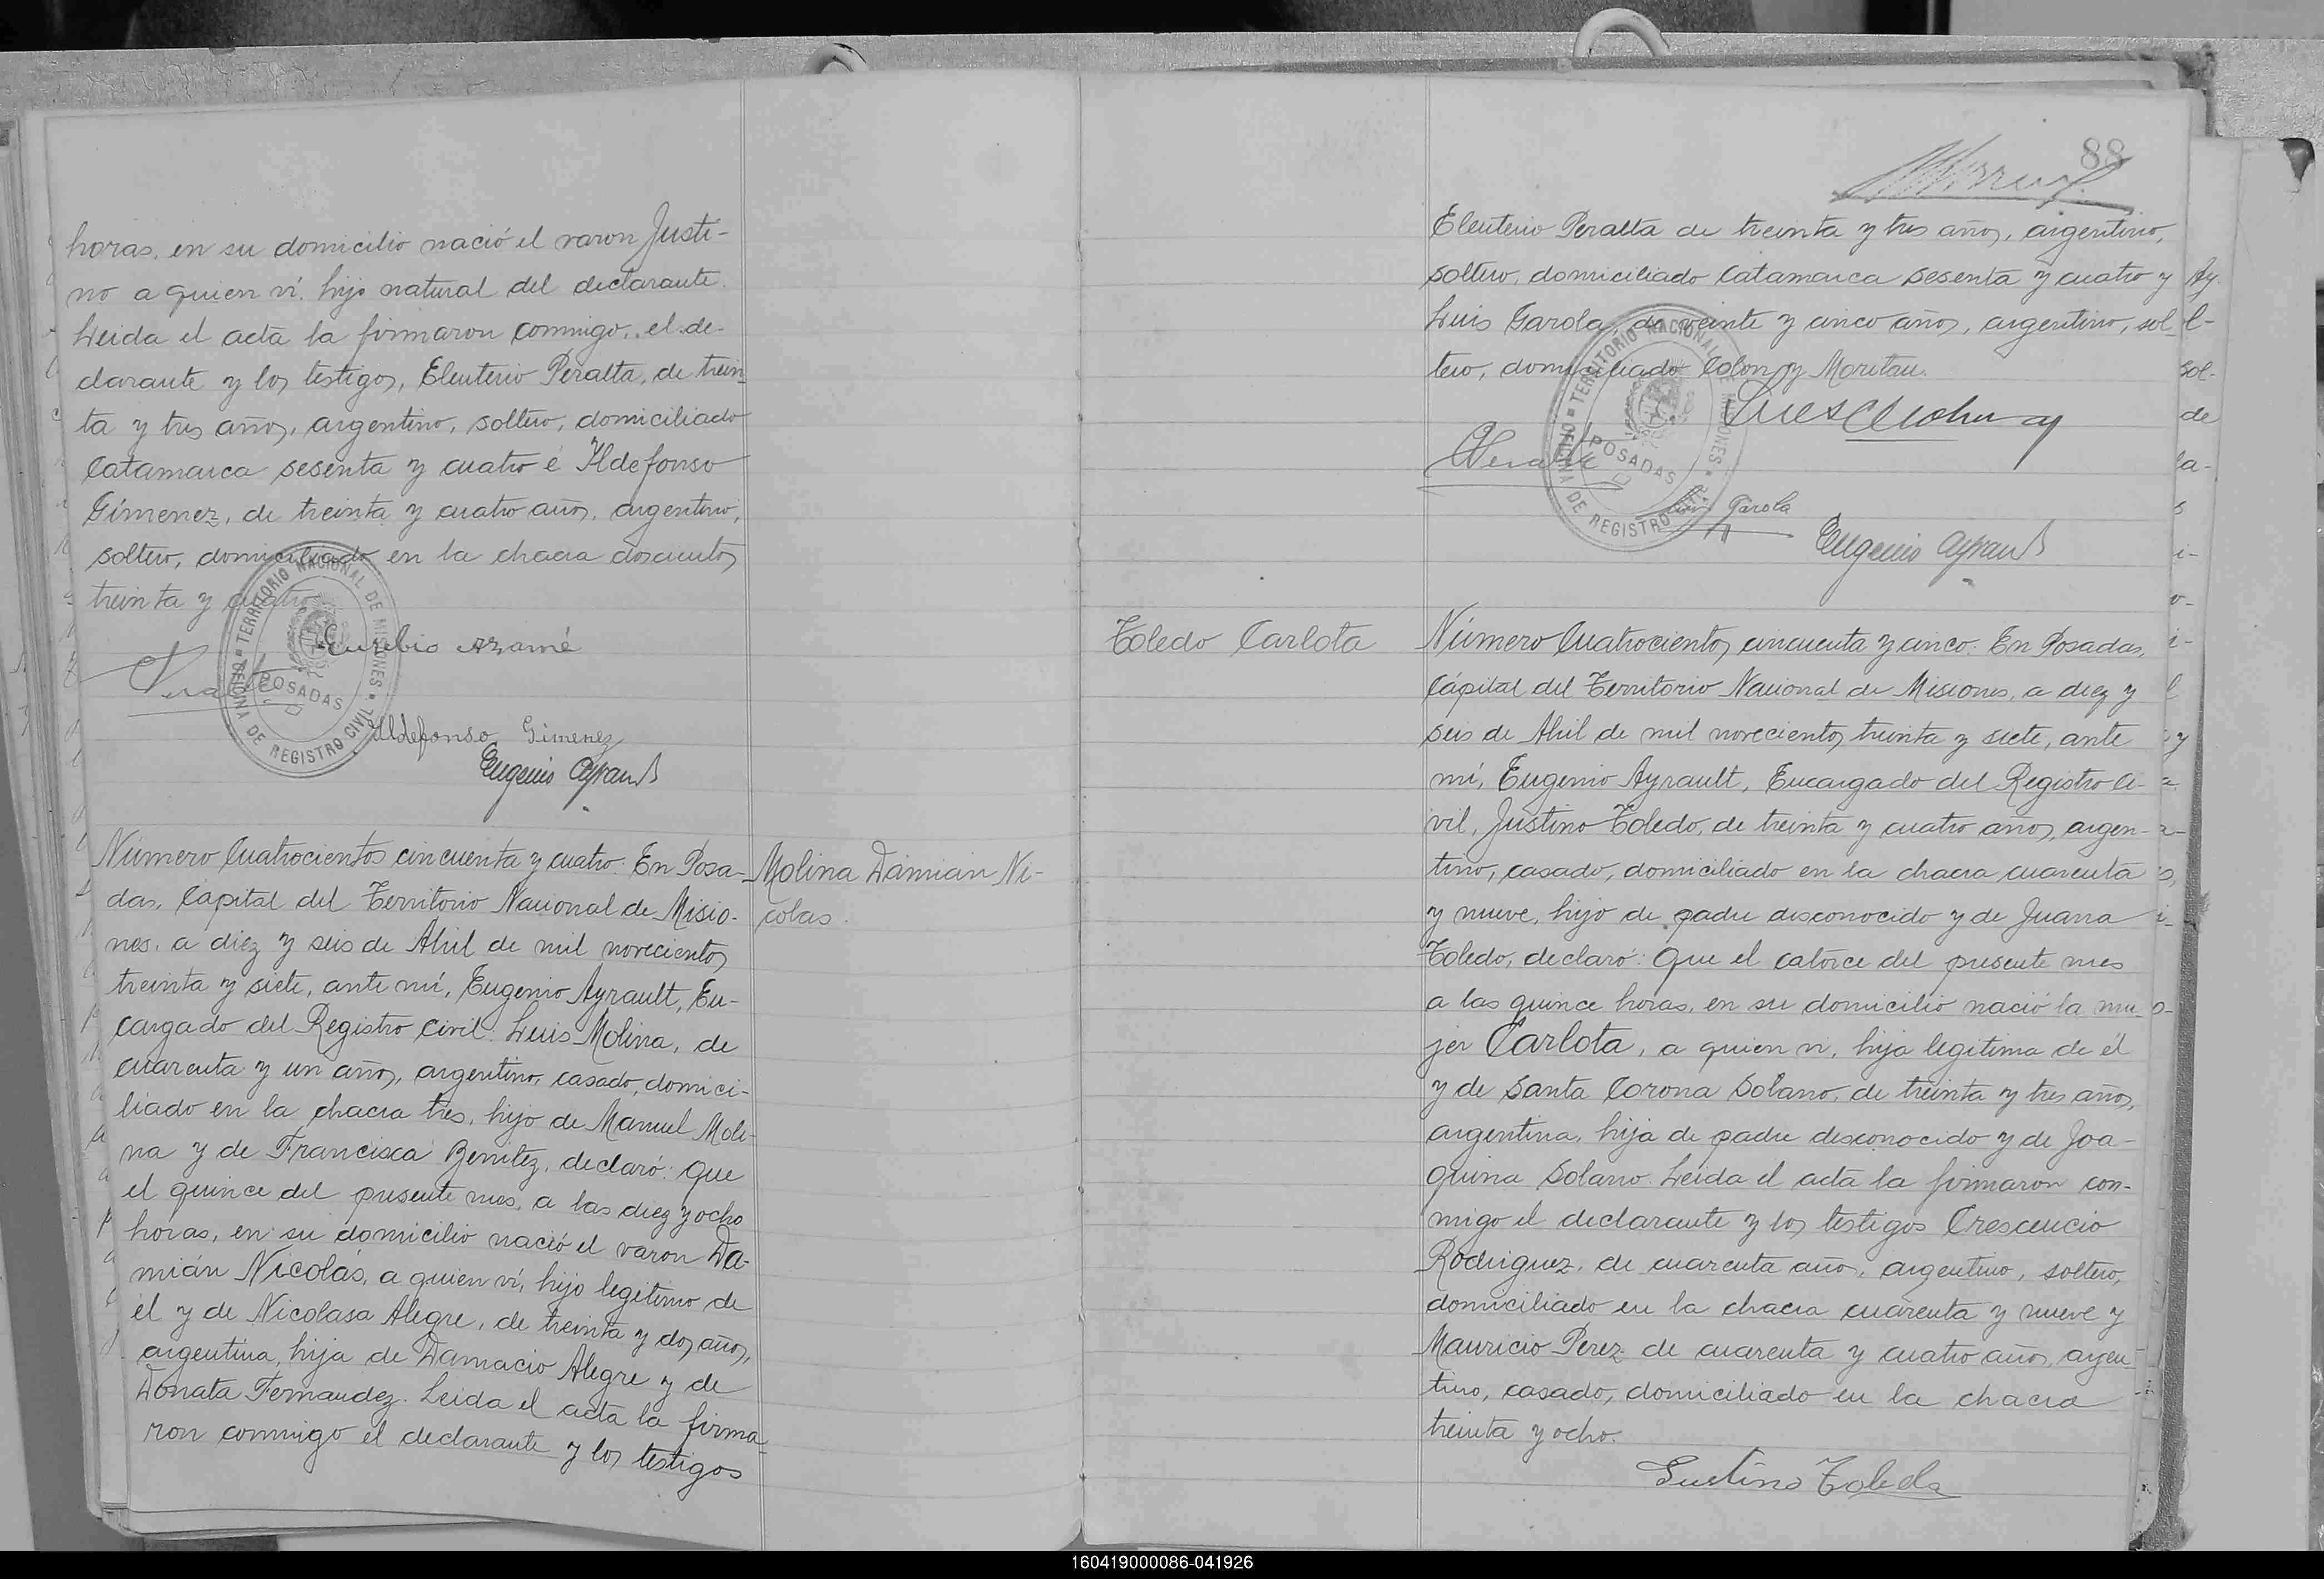 horas, en su domicilio nació el varon Justi-
no a quien ví, hijo natural del declarante.
Leida el acta la firmaron conmigo, el de-
clarante y los testigos, Eleuterio Peralta, de trein
ta y tres años, argentino, soltero, domiciliado
Catamarca sesenta y cuatro é Ildefonso
Gimenez, de treinta y cuatro años, argentino,
soltero, domiciliado en la chacra doscientos
treinta y cuatro
Eusebio
TERRITORIO NACIONAL DE MISIONES
POSADAS
OFICINA DE REGISTRO CIVIL
Ildefonso Gimenez
Eugenio Ayrault
Número Cuatrocientos cincuenta y cuatro. En Posa-
das, Capital del Territorio Nacional de Misio-
nes, a diez y seis de Abril de mil novecientos
treinta y siete, ante mí, Eugenio Ayrault, En-
cargado del Registro Civil: Luis Molina, de
cuarenta y un años, argentino, casado, domici-
liado en la chacra tres, hijo de Manuel Moli-
na y de Francisca Benitez, declaró: Que
el quince del presente mes, a las diez y ocho
horas, en su domicilio nació el varon Da-
mián Nicolás, a quien ví, hijo legitimo de
él y de Nicolasa Alegre, de treinta y dos años,
argentina, hija de Damacio Alegre y de
Donata Fernandez. Leida el acta la firma-
ron conmigo el declarante y los testigos
Molina Damian Ni-
colas.
88
Eleuterio Peralta de treinta y tres años, argentino,
soltero, domiciliado Catamarca sesenta y cuatro y
Luis Garola, de veinte y cinco años, argentino, sol
tero, domiciliado Colon y Moritan.
TERRITORIO NACIONAL DE MISIONES
POSADAS
OFICINA DE REGISTRO CIVIL
Luis Garola
Eugenio Ayrault
Toledo Carlota
Número Cuatrocientos cincuenta y cinco. En Posadas,
Cápital del Territorio Nacional de Misiones, a diez y
seis de Abril de mil novecientos treinta y siete, ante
mí, Eugenio Ayrault, Encargado del Registro Ci-
vil, Justino Toledo, de treinta y cuatro años, argen-
tino, casado, domiciliado en la chacra cuarenta
y nueve, hijo de padre desconocido y de Juana
Toledo, declaró: Que el catorce del presente mes
a las quince horas, en su domicilio nació la mu-
jer Carlota, a quien vi, hija legitima de él
y de Santa Corona Solano, de treinta y tres años,
argentina, hija de padre desconocido y de Joa-
quina Solano. Leida el acta la firmaron con-
migo el declarante y los testigos Crescencio
Rodriguez, de cuarenta años, argentino, soltero,
domiciliado en la chacra cuarenta y nueve y
Mauricio Perez de cuarenta y cuatro años, argen-
tino, casado, domiciliado en la chacra
treinta y ocho.
Justino Toledo
160419000086-041926